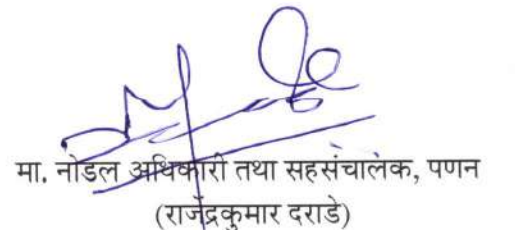 मा. नोडल अधिकारी तथा सहसंचालक, पणन
(राजेंद्रकुमार दराडे)